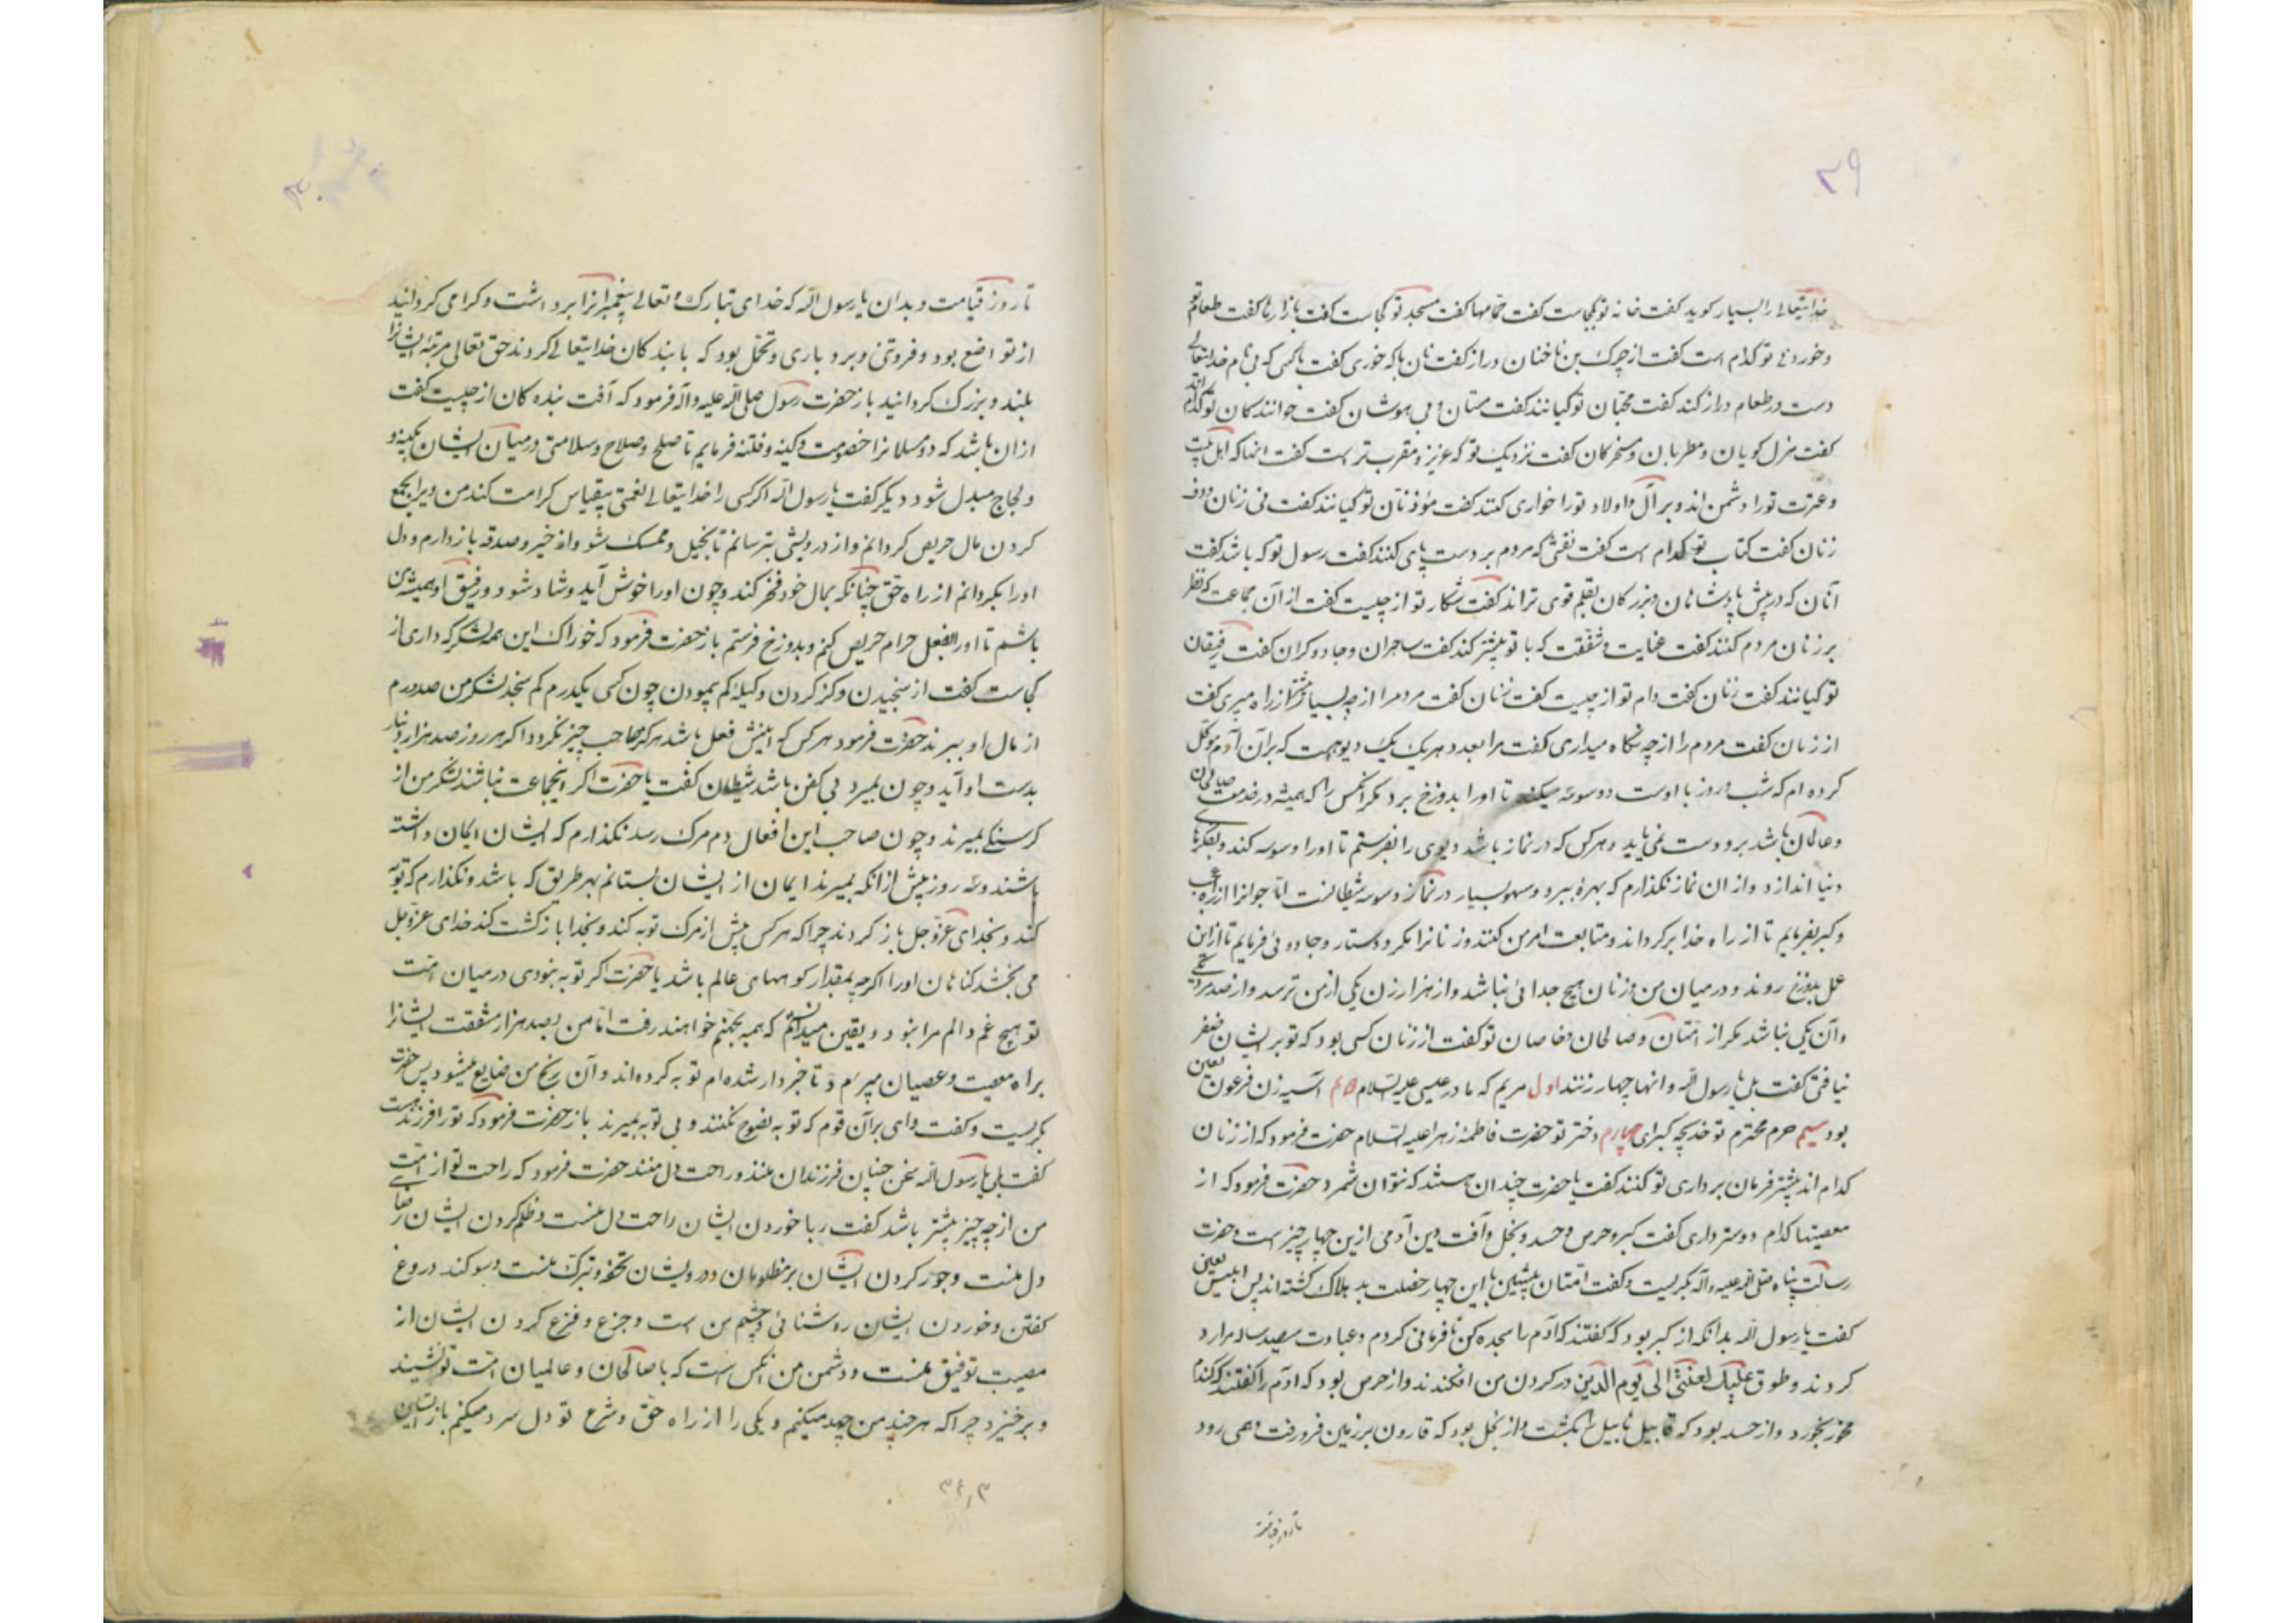 ۳۹
خدایتعالی را بسیار کوید کفت خانه تو کجاست کفت حمامها کفت مسجد تو کجاست کفت بازارها کفت طعام تو
و خوردنی تو کدام است کفت از چرک بن ناخنان دراز کفت نان با که خوری کفت با کسی که بی نام خدایتعالی
دست در طعام دراز کند کفت محبان تو کیانند کفت مستان و بی هوشان کفت خوانندکان تو کدام اند
کفت هزل کویان و مطربان و مسخرکان کفت نزدیک تو که عزیز و مقرب تر است کفت انها که اهل بیت
و عترت تو را دشمن اند و بر آل و اولاد تو را خواری کنند کفت مؤذنان تو کیانند کفت نی زنان و دف
زنان کفت کتاب تو کدام است کفت نقشی که مردم بر دست و پای کنند کفت رسول تو که باشد کفت
آنان که در پیش پادشاهان و بزرکان بقلم قوی تر اند کفت شکار تو از چیست کفت از آن جماعت که نظر
بر زنان مردم کنند کفت عنایت و شفقت که با تو بیشتر کند کفت ساحران و جادوکران کفت رفیقان
تو کیانند کفت زنان کفت دام تو از چیست کفت زنان کفت مردم را از چه بسیار از راه میبری کفت
از زنان کفت مردم را از چه نکاه میداری کفت مرا بعدد هر یک یک دیو هست که بر آن آدم موکل
کرده ام که شب و روز با اوست و وسوسه میکند تا او را بدوزخ برد مکر آنکس را که همیشه در خدمت صالحان
و عالمان باشد بر و دست نمی یابد و هر کس که در نماز باشد دیوی را بفرستم تا او را وسوسه کند و بفکرهای
دنیا اندازد و از ان نماز نکذارم که بهرهٔ ببرد و سهو بسیار در نماز از وسوسه شیطانست اما جوانرا از راه عجب
و کبر بفریبم تا از راه خدا برکرداند و متابعت امر من کنند و زنانرا بمکر و دستار و جادوئی فریبم تا از این
عمل بدوزخ روند و در میان من و زنان هیچ جدائی نباشد و از هزار زن یکی از من ترسد و از صد مرد یکی
و آن یکی نباشد مکر از امتان و صالحان و خاصان تو کفت از زنان کسی بود که تو بر ایشان ظفر
نیافتی کفت بلی یا رسول الله و انها چهار زنند اول مریم که مادر عیسی علیه السلام دویم آسیه زن فرعون لعین
بود سیم حرم محترم تو خدیجه کبرای چهارم دختر تو حضرت فاطمهٔ زهرا علیه السلام حضرت فرمود که از زنان
کدام اند بیشتر فرمان برداری تو کنند کفت یا حضرت چندان هستند که نتوان شمرد حضرت فرمود که از
معصیتها کدام دوستر داری کفت کبر و حرص و حسد و بخل و آفت دین آدمی ازین چهار چیز است و حضرت
رسالت پناه صلی الله علیه و آله بکریست و کفت امتان پیشین باین چهار خصلت بد هلاک کشته اند پس ابلیس لعین
کفت یا رسول الله بدانکه از کبر بود که کفتند که آدم را سجده کن نافرمانی کردم و عبادت سیصد ساله مرا رد
کردند و طوق علیک لعنتی الی یوم الدین در کردن من افکندند و از حرص بود که ادم را کفتند که کندم
مخور بخورد و از حسد بود که قابیل هابیل را بکشت و از بخل بود که قارون بر زمین فرو رفت و همی رود
تا روز قیامت
تا روز قیامت و بدان یا رسول الله که خدای تبارک و تعالی پیغمبرانرا برداشت و کرامی کردانید
از تواضع بود و فروتنی و بردباری و تحمل بود که با بندکان خدایتعالی کردند حق تعالی مرتبهٔ ایشانرا
بلند و بزرک کردانید باز حضرت رسول صلی الله علیه و آله فرمود که آفت بنده کان از چیست کفت
از ان باشد که دو مسلمانرا خصومت و کینه و فتنه فرمایم تا صلح و صلاح و سلامتی در میان ایشان بکینه و
و لجاج مبدل شود دیکر کفت یا رسول الله اکر کسی را خدایتعالی نعمتی بیقیاس کرامت کند من ویرا بجمع
کردن مال حریص کردانم و از درویشی بترسانم تا بخیل و ممسک شود و از خیر و صدقه باز دارم و دل
او را بکردانم از راه حق چنانکه بمال خود فخر کند و چون او را خوش آید و شاد شود و رفیق او همیشه من
باشم تا او را بفعل حرام حریص کنم و بدوزخ فرستم باز حضرت فرمود که خوراک این همه لشکر که داری از
کجاست کفت از سنجیدن و کز کردن و کیله کم پیمودن چون کسی یکدرم کم سنجد لشکر من صد درم
از مال او ببرند حضرت فرمود هر کس که اینش فعل باشد هرکز صاحب چیز نکردد اکر هر روز صد هزار دینار
بدست او آید و چون بمیرد بی کفن باشد شیطان کفت یا حضرت اکر اینجماعت نباشند لشکر من از
کرسنکی بمیرند و چون صاحب این افعال دم مرک رسد نکذارم که ایشان ایمان داشته
باشند و سه روز پیش از انکه بمیرند ایمان از ایشان بستانم بهر طریق که باشد و نکذارم که توبه
کند و بخدای عز و جل باز کردند چرا که هر کس پیش از مرک توبه کند و بخدا بازکشت کند خدای عز و جل
می بخشد کناهان او را اکرچه بمقدار کوههای عالم باشد یا حضرت اکر توبه نبودی در میان امت
تو هیچ غم و الم مرا نبود و یقین میدانستم که همه بجهنم خواهند رفت اما من بصد هزار مشقت ایشانرا
براه معصیت و عصیان میبرم و تا خبردار شده ام توبه کرده اند و آن رنج من ضایع میشود پس حضرت
بکریست و کفت وای بر آن قوم که توبه نصوح نکنند و بی توبه بمیرند باز حضرت فرمود که تو را فرزند هست
کفت بلی یا رسول الله سخن چینان فرزندان منند و راحت دل منند حضرت فرمود که راحت تو از امت
من از چه چیز بیشتر باشد کفت ربا خوردن ایشان راحت دل منست و ظلم کردن ایشان رضای
دل منست و جور کردن ایشان بر مظلومان و درویشان تحفه و تبرک منست و سوکند دروغ
کفتن و خوردن ایشان روشنائی دو چشم من است و جزع و فزع کردن ایشان از
مصیبت توفیق منست و دشمن من آنکس است که با صالحان و عالمیان امت تو نشیند
و برخیزد چرا که هر چند من جهد میکنم و یکی را از راه حق و شرع تو دل سرد میکنم باز ایشان